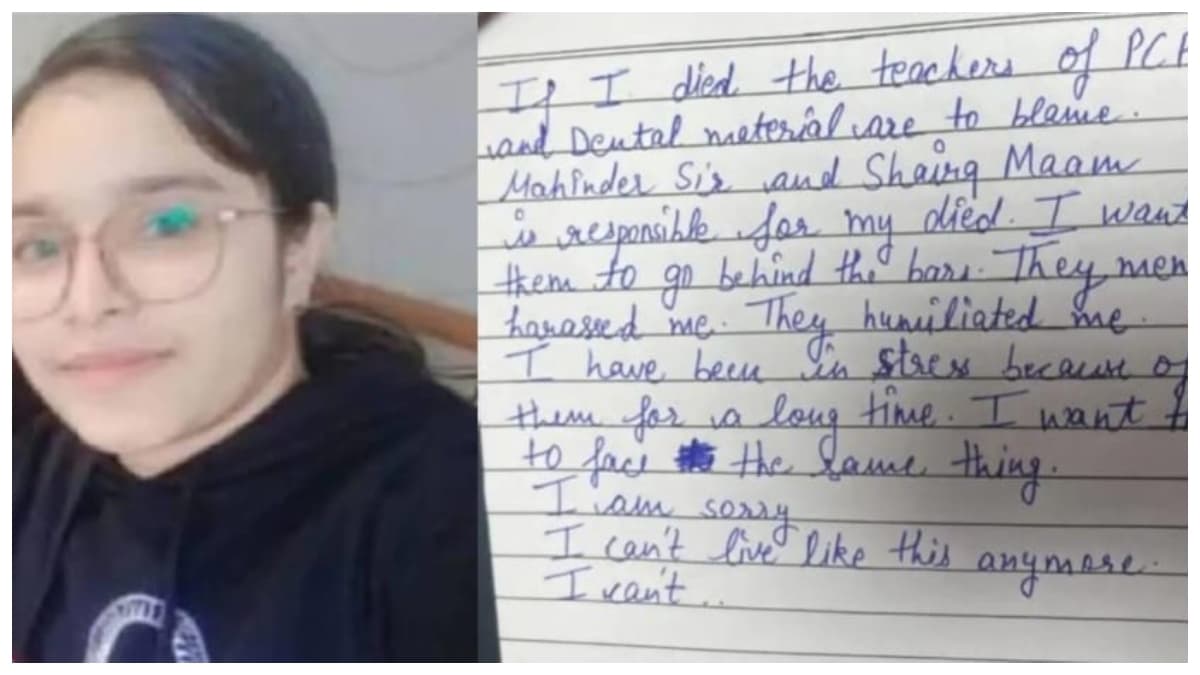 If I died the teachers of PCP
and Dental material are to blame.
Mahinder Sir and Shairg Maam
is responsible for my died. I want
them to go behind the bars. They men
harassed me. They humiliated me.
I have been in stress because of
them for a long time. I want th
to face the same thing.
I am sorry
I can't live like this anymore.
I can't..